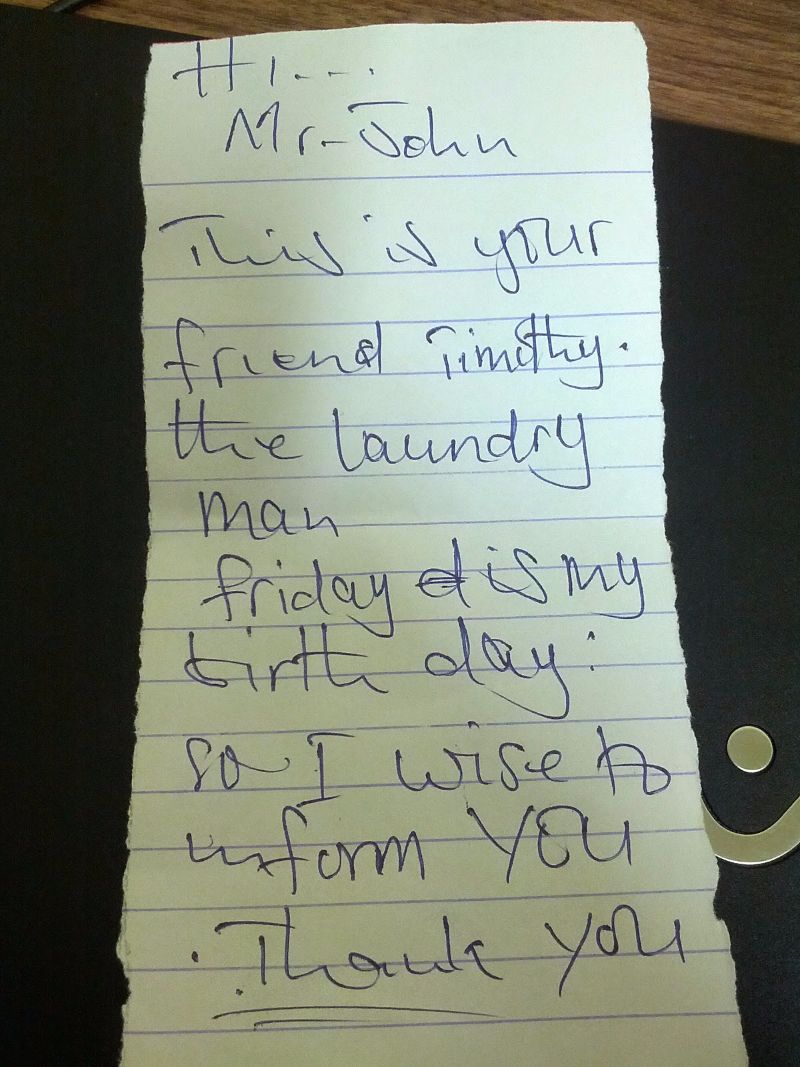 Hi...
Mr-John
This is your
friend Timothy.
the laundry
man
friday is my
birth day:
so I wise to
inform you
.Thank you